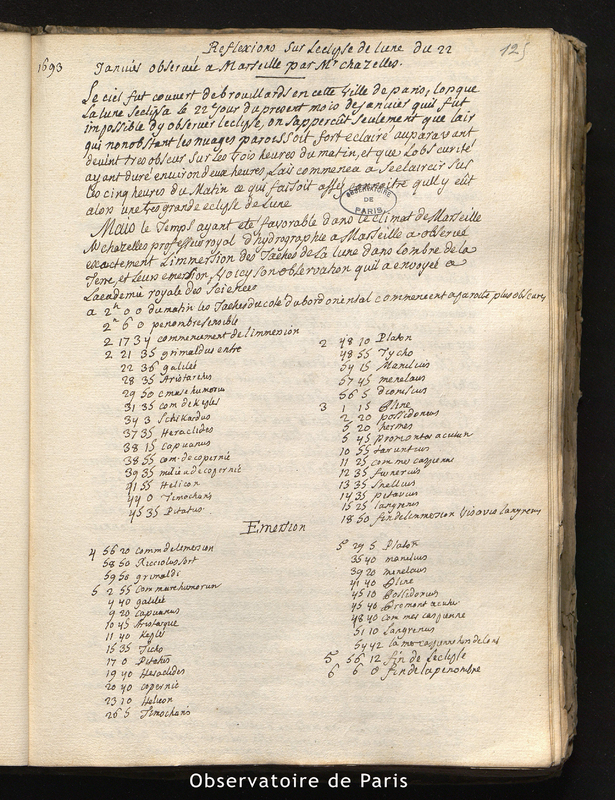 125
Reflexions Sur Leclypse de lune du 22
1693 Janvier observée a Marseille par Mr chazelles.
Le ciel fut couvert de brouillards en cette ville de paris, lorsque
la lune seclipsa le 22 jour du present mois de janvier quil fut
impossible dy observer leclipse, on sappercut seulement que lair
qui nonobstant les nuages paroissoit fort eclairé auparavant
devint tres obscur sur les trois heures du matin, et que lobscurité
ayant duré environ deux heures, lair commenca a seclaircir sur
les cinq heures du matin ce qui faisoit assez connoitre quil y eut
alors une tres grande eclipse de lune
OBSERVATOIRE DE PARIS
Mais le temps ayant eté favorable dans le climat de Marseille
Mr chazelles professeur royal d'hydrographie a Marseille a observé
exactement L'immersion des Taches de la lune dans Lombre de la
Terre, et leurs emersion, Voicy son observation quil a envoyée a
Lacademie royale des Sciences
a 2h 0 0 du matin les Taches du coté du bord oriental commencent a paroitre plus obscures
2h 6 0 penombre sensible
2 17 34 commencement de limmersion
2 21 35 grimaldus entre
22 36 galilée
28 35 Aristarchus
29 50 c mare humorum
31 35 com de Kepler
34 3 Schikardus
37 35 Heraclides
38 15 capuanus
38 55 com. de copernic
39 35 milieu de copernic
41 55 Helicon
44 0 Timocharis
45 35 Pitatus
2 48 10 Platon
48 55 Tycho
54 15 Manilius
57 45 menelaus
58 5 dionisius
3 1 15 Pline
2 20 possidonius
5 20 hermes
5 45 promontor acutum
10 55 taruntius
11 25 com mer caspienne
12 35 furnerius
13 35 Snellius
14 35 petavius
15 25 langrenus
18 50 fin de limmersion vis a vis langrenus
Emersion
4 56 20 comm de lemersion
58 50 Ricciolus sort
59 58 grimaldi
5 2 55 com mare humorum
4 40 galilée
9 20 capuanus
10 45 Aristarque
11 40 Kepler
15 35 Ticho
17 0 Pitatus
19 40 Heraclides
20 40 copernic
23 10 Helicon
26 5 Timocharis
5 29 5 Platon
35 40 manilius
39 20 menelaus
41 40 Pline
45 10 Possidonius
45 46 Promont acutum
48 40 com mer caspienne
51 10 Langrenus
54 42 la mer caspienne hors de lombre
5 56 12 fin de Leclipse
6 6 0 fin de la penombre
Observatoire de Paris